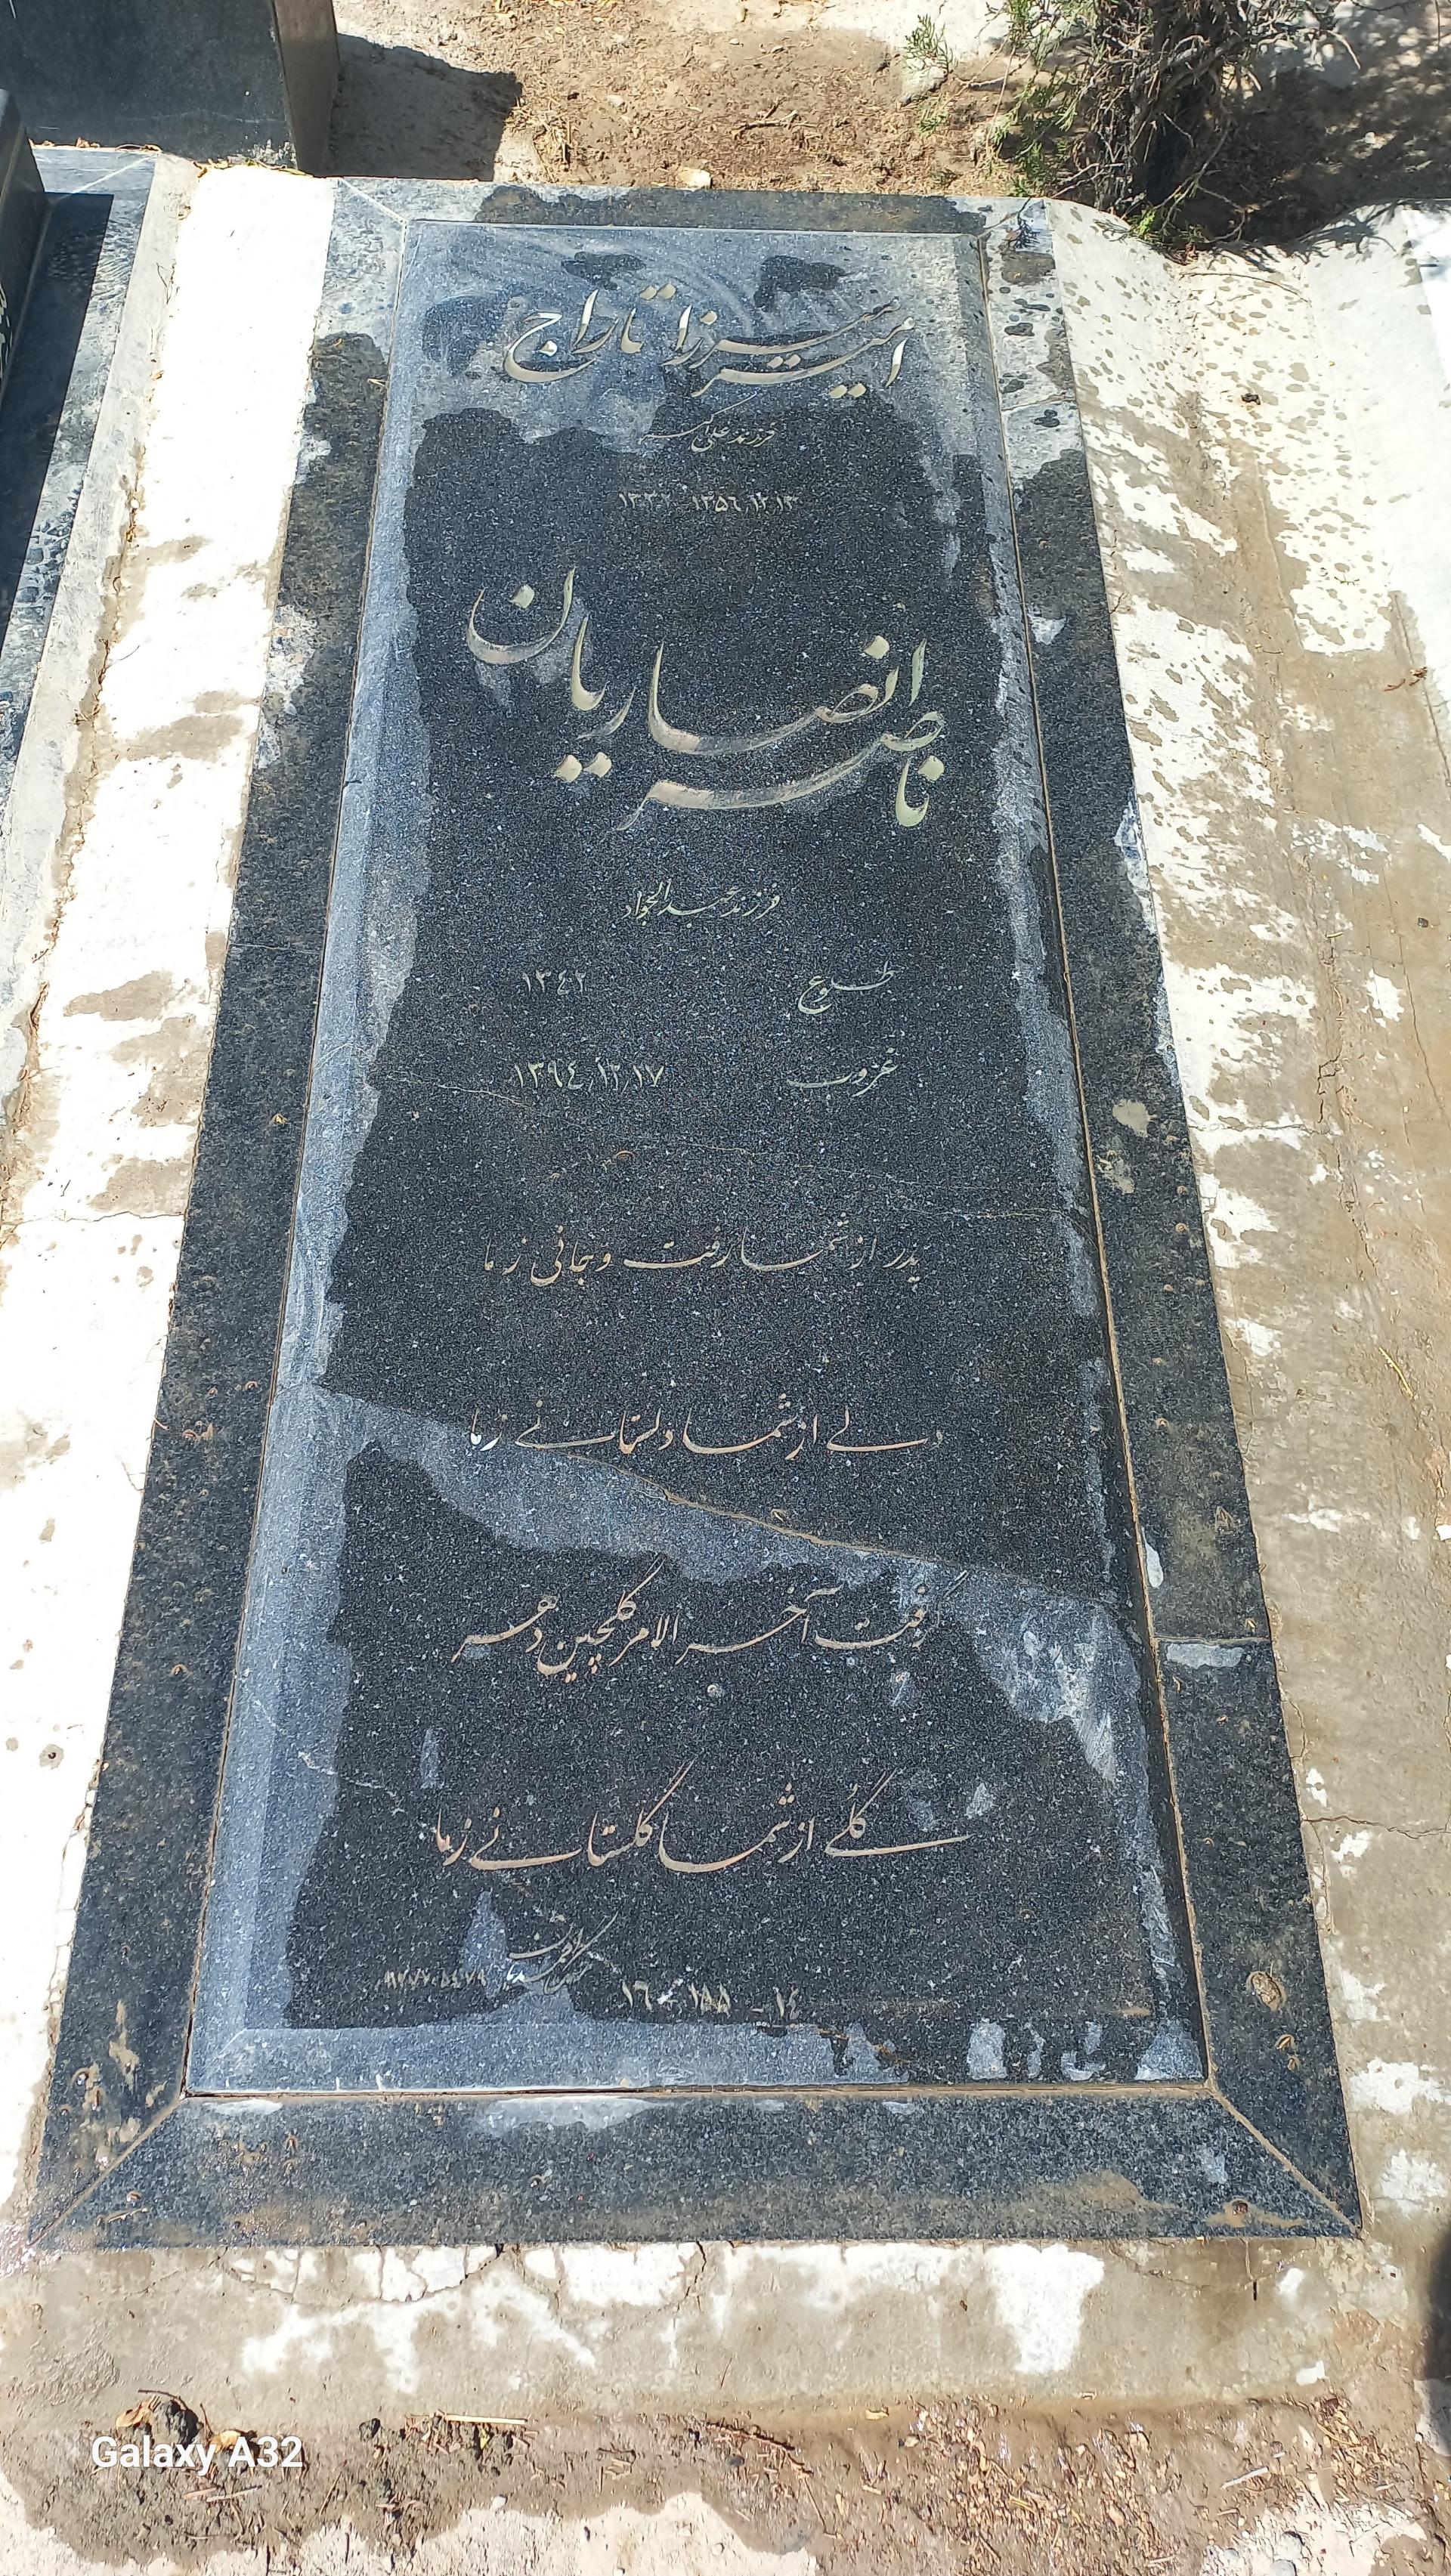 امیر میرزا تاراج
فرزند علی اکبر
۱۳۳۲ - ۱۳۵۶,۱۲,۱۳
ناصر انصاریان
فرزند عبدالجواد
طلوع ۱۳۴۲
غروب ۱۳۹۴,۱۲,۱۷
پدر از شما رفت و جانی ز ما
دلی از شما دلستانی ز ما
گرفت آخر الامر گلچین دهر
گلی از شما گلستانی ز ما
۱۶ - ۱۵۵ - ۱٤
Galaxy A32